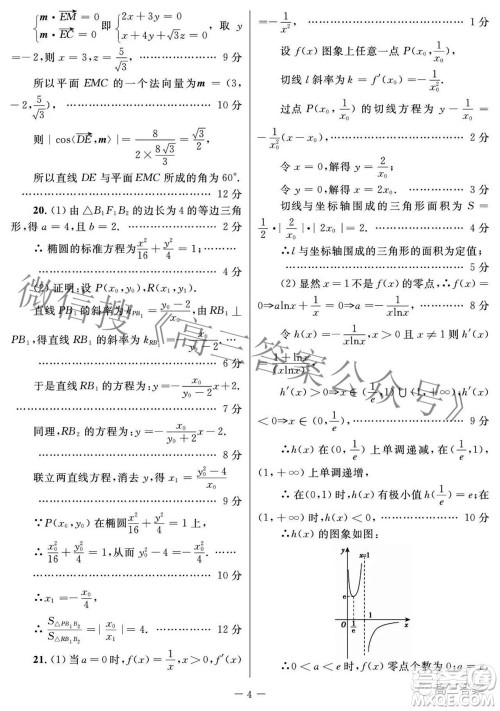 {m·EM=0 即 {2x+3y=0 ，取 y
{m·EC=0 {x+4y+√3z=0
=-2，则 x=3，z=5/√3. ………… 9 分
所以平面 EMC 的一个法向量为 m=(3,
-2, 5/√3) ………… 10 分
则 | cos⟨DE, m⟩ | = 8/(2×8√3/3) = √3/2
所以直线 DE 与平面 EMC 所成的角为 60°.
………… 12 分
20. (1) 由 △B₁F₁B₂ 的边长为 4 的等边三角
形，得 a=4，且 b=2. ………… 2 分
∴ 椭圆的标准方程为 x²/16+y²/4=1.
………… 4 分
(2) 证明：设 P(x₀, y₀)，R(x₁, y₁)
直线 PB₁ 的斜率为 k_{PB₁}=(y₀-2)/x₀，由 RB₁⊥
PB₁，得直线 RB₁ 的斜率为 k_{RB₁}=-x₀/(y₀-2).
………… 6 分
于是直线 RB₁ 的方程为：y=-x₀/(y₀-2) x+2.
………… 7 分
同理，RB₂ 的方程为：y=-x₀/(y₀+2) x-2.
………… 8 分
联立两直线方程，消去 y，得 x₁=(y₀²-4)/x₀
………… 9 分
∵ P(x₀, y₀) 在椭圆 x²/16+y²/4=1 上，
∴ x₀²/16+y₀²/4=1，从而 y₀²-4=-x₀²/4
………… 11 分
∴ x₁=-x₀/4，
∴ S△PB₁B₂/S△RB₁B₂=|x₀/x₁|=4. ………… 12 分
21. (1) 当 a=0 时，f(x)=1/x，x>0，f′(x)
=-1/x²， ………… 1 分
设 f(x) 图象上任意一点 P(x₀, 1/x₀)，
切线 l 斜率为 k=f′(x₀)=-1/x₀².
过点 P(x₀, 1/x₀) 的切线方程为 y-1/x₀=
-1/x₀²(x-x₀) ………… 2 分
令 x=0，解得 y=2/x₀；
令 y=0，解得 x=2x₀. ………… 3 分
切线与坐标轴围成的三角形面积为 S=
1/2·|2/x₀|·|2x₀|=2.
∴ l 与坐标轴围成的三角形的面积为定值；
………… 5 分
(2) 显然 x=1 不是 f(x) 的零点，∴ f(x)=
0⇒alnx+1/x=0⇒a=-1/(xlnx). ………… 6 分
令 h(x)=-1/(xlnx)，x>0 且 x≠1 则 h′(x)=
(1+lnx)/(xlnx)²
h′(x)>0⇒x∈(1/e, 1)∪(1,+∞)，h′(x)
<0⇒x∈(0, 1/e). ………… 9 分
∴ h(x) 在 (0, 1/e) 上单调递减，在 (1/e, 1)，
(1,+∞) 上单调递增.
∴ 在 (0, 1) 时，h(x) 有极小值 h(1/e)=e；在
(1,+∞) 时，h(x)<0. ………… 10 分
∴ h(x) 的图象如图：
y
x=1
e
O
1/e
x
∴ 0<a<e 时，f(x) 零点个数为 0；a=
— 4 —
微信搜《高三答案公众号》